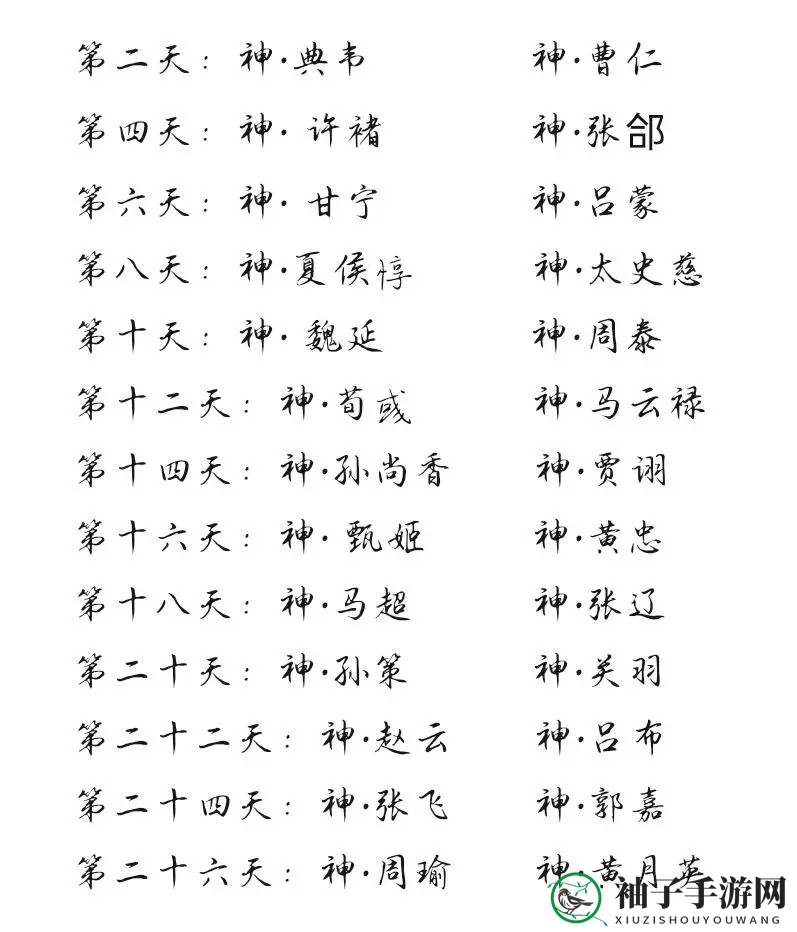 第二天：神·典韦 神·曹仁
第四天：神·许褚 神·张郃
第六天：神·甘宁 神·吕蒙
第八天：神·夏侯惇 神·太史慈
第十天：神·魏延 神·周泰
第十二天：神·荀彧 神·马云禄
第十四天：神·孙尚香 神·贾诩
第十六天：神·甄姬 神·黄忠
第十八天：神·马超 神·张辽
第二十天：神·孙策 神·关羽
第二十二天：神·赵云 神·吕布
第二十四天：神·张飞 神·郭嘉
第二十六天：神·周瑜 神·黄月英
袖子手游网
XIUZISHOUYOUWANG